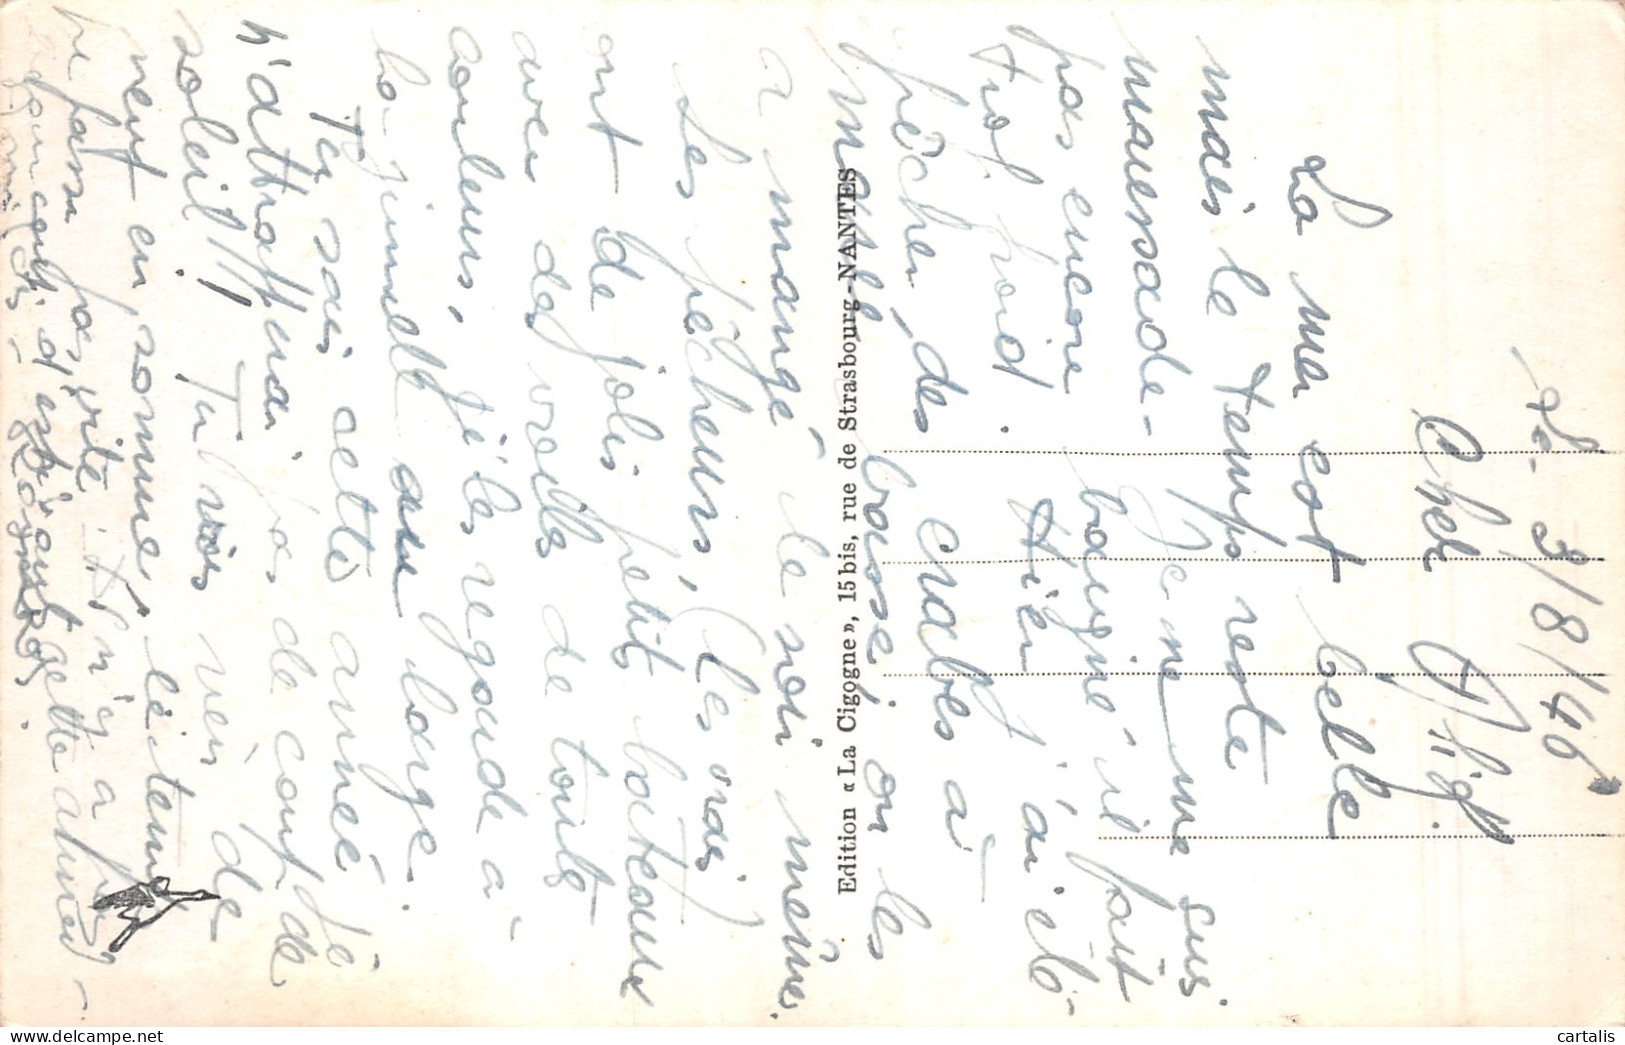 Le 3/8/46
Cher
La mer est belle
mais le temps reste
maussade - Je me me suis
pas encore baigné il fait
trop froid. Hier j'ai été
pêcher, des crabes à
marée basse, on les
a mangé le soir même.
Les pêcheurs, (les vrais)
ont de jolis petits bateaux
avec des voiles de toute
couleurs, je les regarde à
la jumelle au large.
Tu sais cette année je
n'attraperai pas de coup de
soleil!!! Tu vois rien de
neuf en somme, le temps
ne passe pas vite. Il n'y a pas
d'aussi
cette année -
Edition « La Cigogne », 15 bis, rue de Strasbourg - NANTES
cartalis